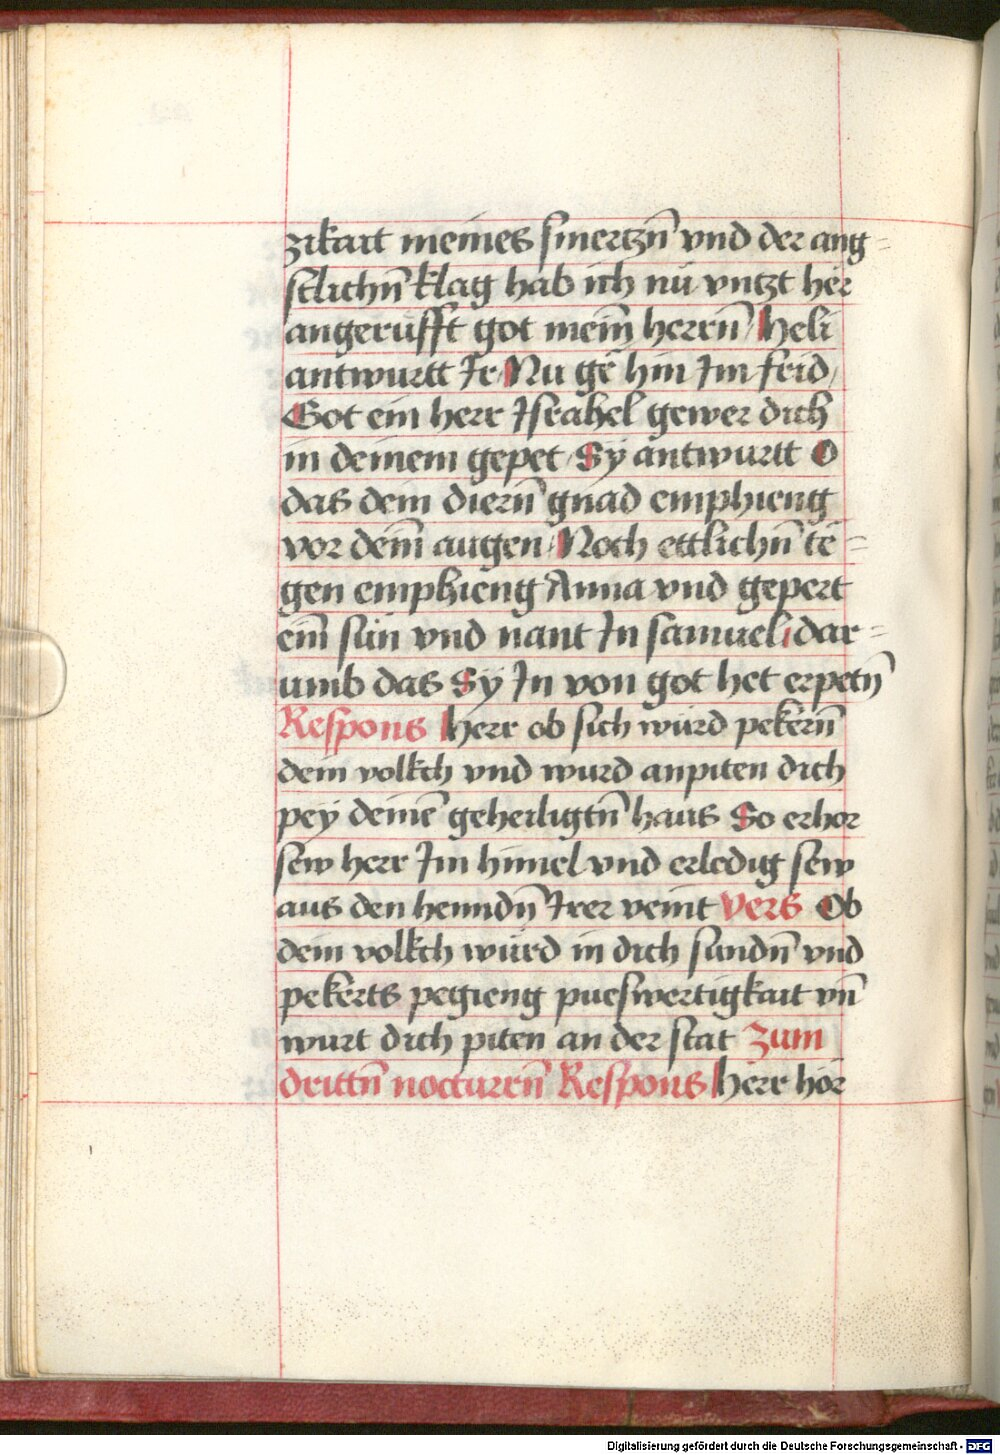 zikait meines smertzn̄ vnd der ang=
stlichn̄ klag hab ich nu vntzt her
angerufft got mein̄ herrn̄ / Heli
antwurtt Ir Nu ge hin Im frid /
Got ein herr Israhel gewer dich
in deinem gepet / Sÿ antwurtt O
das dein diern̄ gnad emphieng
vor dein̄ augen / Noch ettlichn̄ të=
gen emphieng Anna vnd gepert
ein̄ sün vnd nant In samuel / dar=
umb das Sÿ In von got het erpetn̄
Respons Herr ob sich würd pekern̄
dein volkch vnd wurd anpiten dich
pey deinē geheiligtn̄ haus So erhor
sew herr Im himel vnd erledig sew
aus den henndn̄ Irer veint Vers Ob
dein volkch würd in dich sundn̄ vnd
pekerts pegieng pueswertigkait vn̄
wurt dich piten an der stat Zum
drittn̄ nocturrn̄ Respons Herr hör
Digitalisierung gefördert durch die Deutsche Forschungsgemeinschaft - DFG